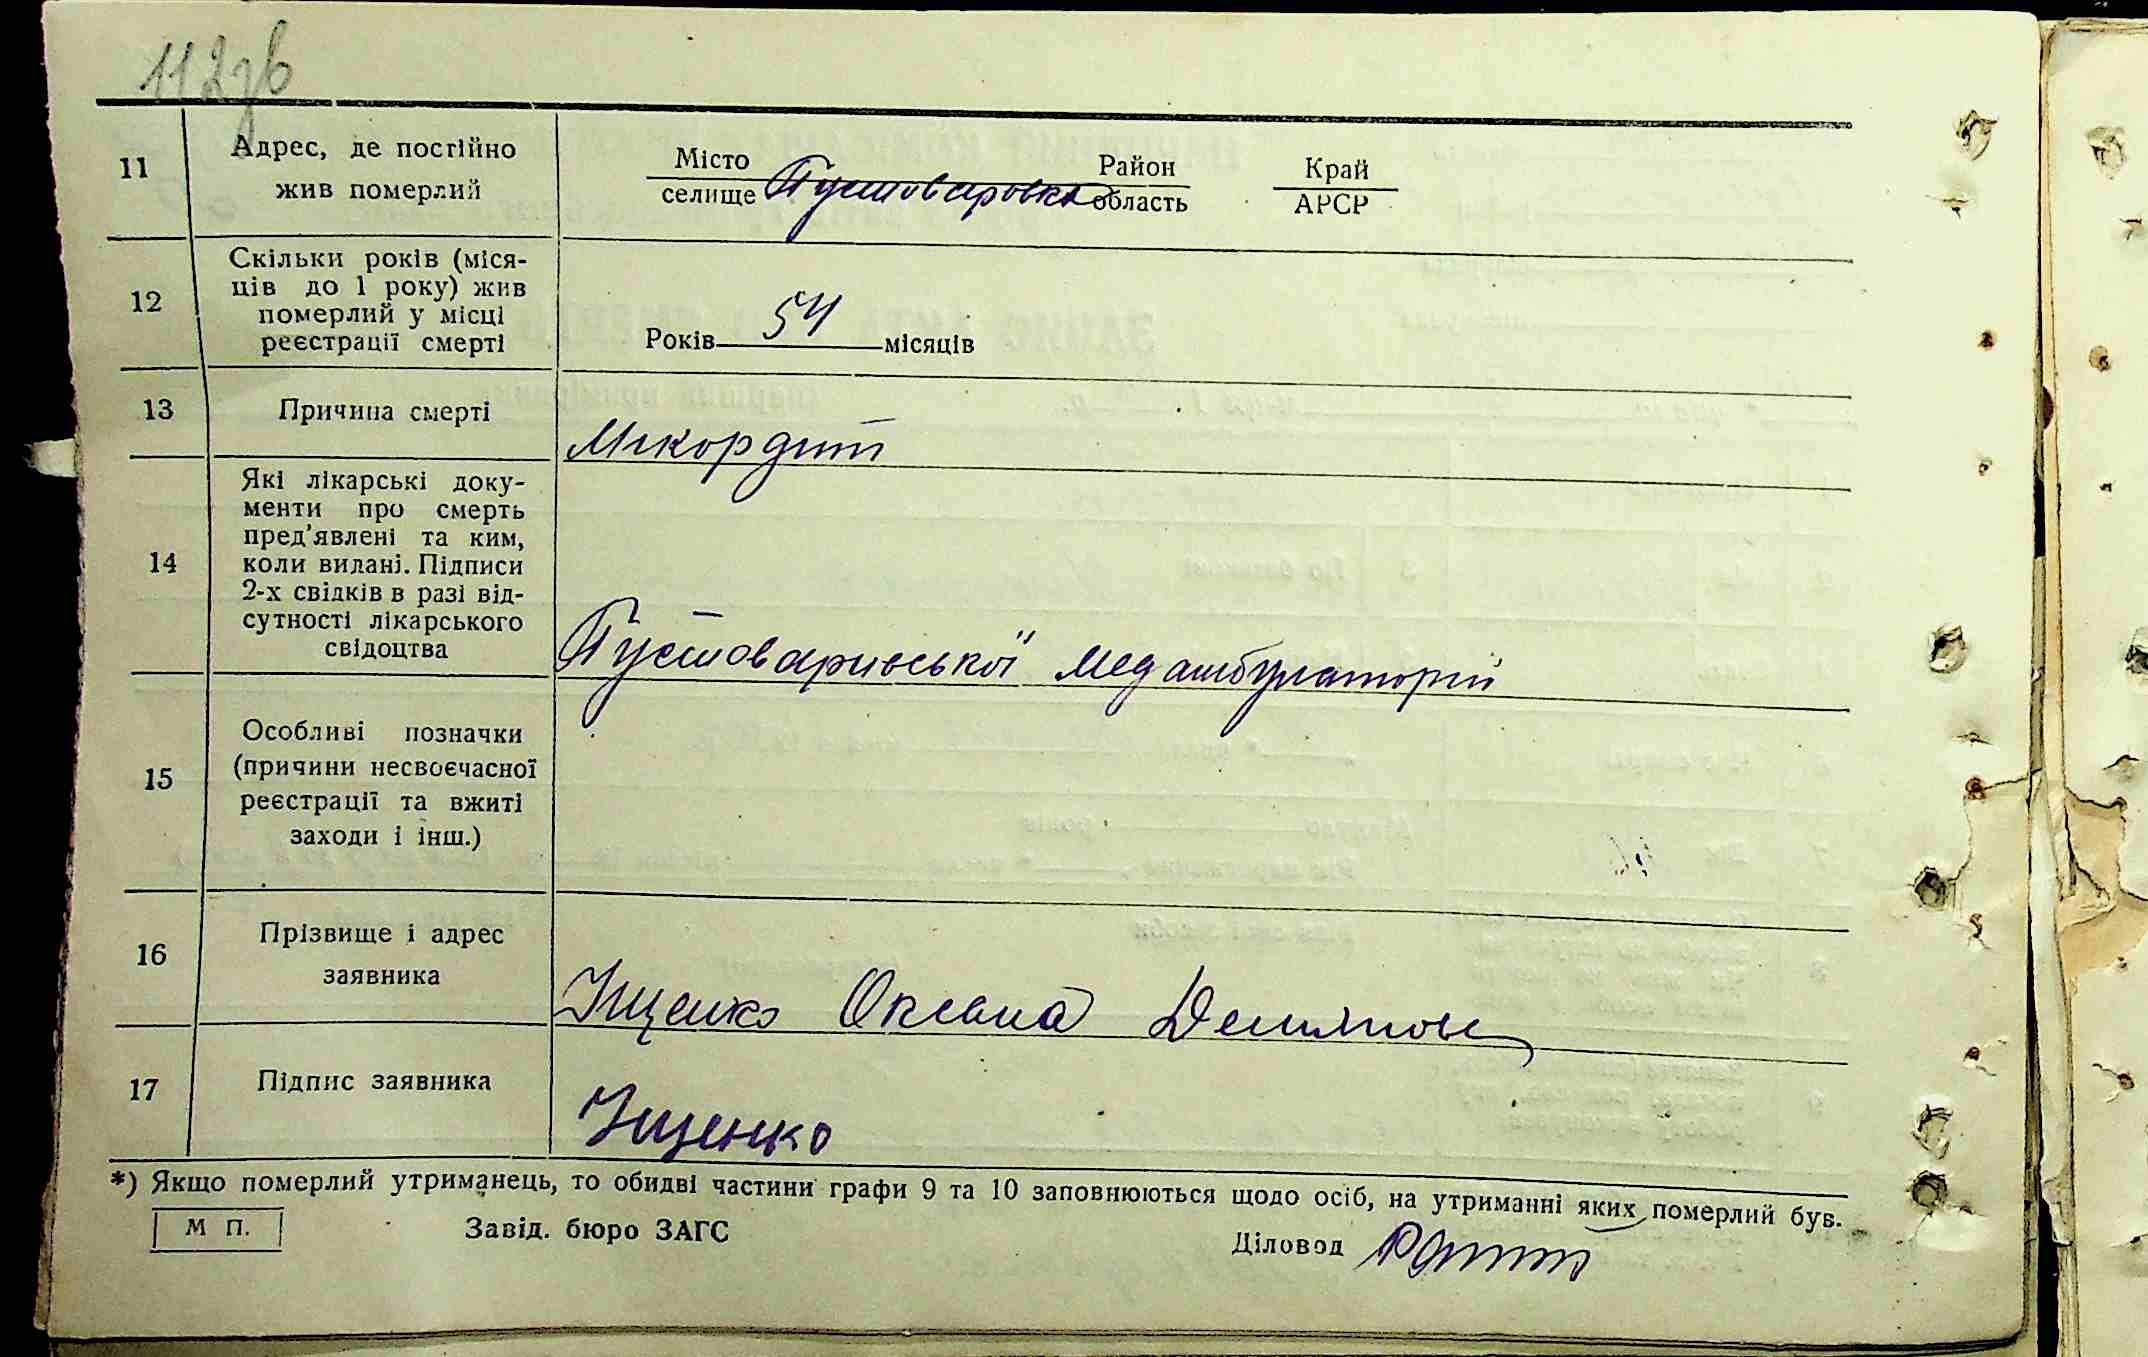 112зв
11
Адрес, де постійно
жив померлий
Місто
селище Пустоваровка
Район
область
Край
АРСР
12
Скільки років (міся-
ців до 1 року) жив
померлий у місці
реєстрації смерті
Років 54 місяців
13
Причина смерті
Міокордит
14
Які лікарські доку-
менти про смерть
пред'явлені та ким,
коли видані. Підписи
2-х свідків в разі від-
сутності лікарського
свідоцтва
Пустоваринської Медамбулаторії
15
Особливі позначки
(причини несвоєчасної
реєстрації та вжиті
заходи і інш.)
16
Прізвище і адрес
заявника
Іщенко Оксана
17
Підпис заявника
Іщенко
*) Якщо померлий утриманець, то обидві частини графи 9 та 10 заповнюються щодо осіб, на утриманні яких померлий був.
М П.
Завід. бюро ЗАГС
Діловод